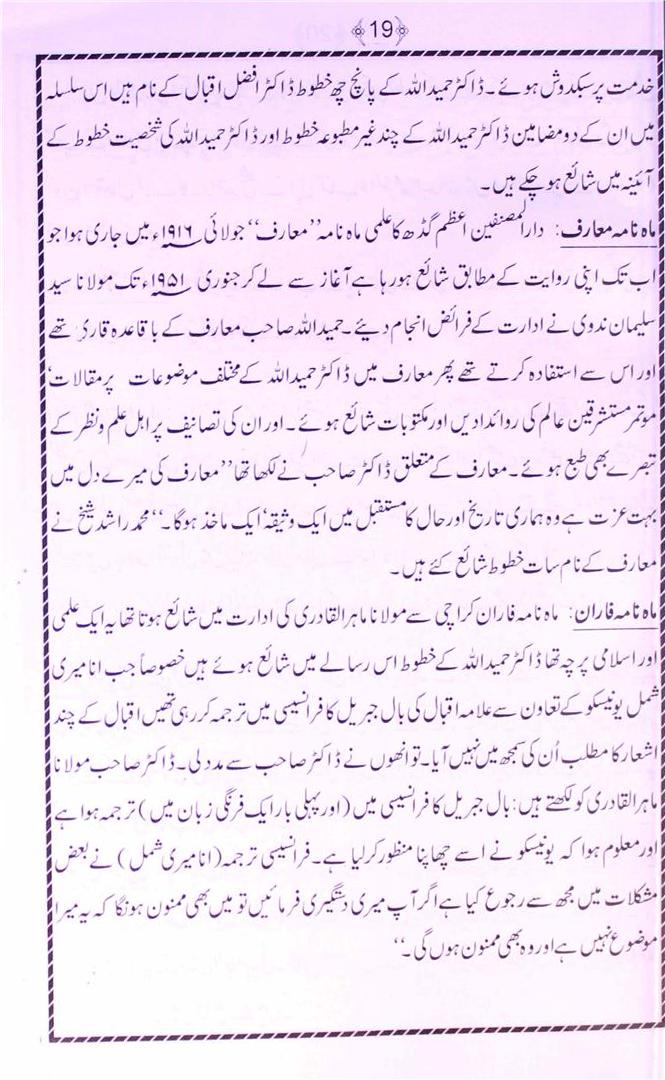 ﴿19﴾
خدمت پر سبکدوش ہوئے۔ ڈاکٹر حمید اللہ کے پانچ چھ خطوط ڈاکٹر افضل اقبال کے نام ہیں اس سلسلہ
میں ان کے دو مضامین ڈاکٹر حمید اللہ کے چند غیر مطبوعہ خطوط اور ڈاکٹر حمید اللہ کی شخصیت خطوط کے
آئینہ میں شائع ہو چکے ہیں۔
ماہ نامہ معارف: دارالمصنفین اعظم گڈھ کا علمی ماہ نامہ ’’معارف‘‘ جولائی ۱۹۱۶ء میں جاری ہوا جو
اب تک اپنی روایت کے مطابق شائع ہو رہا ہے آغاز سے لے کر جنوری ۱۹۵۱ء تک مولانا سید
سلیمان ندوی نے ادارت کے فرائض انجام دیئے۔ حمید اللہ صاحب معارف کے با قاعدہ قاری تھے
اور اس سے استفادہ کرتے تھے پھر معارف میں ڈاکٹر حمید اللہ کے مختلف موضوعات پر مقالات‘
موتمر مستشرقین عالم کی روائدادیں اور مکتوبات شائع ہوئے۔ اور ان کی تصانیف پر اہل علم و نظر کے
تبصرے بھی طبع ہوئے۔ معارف کے متعلق ڈاکٹر صاحب نے لکھا تھا ’’معارف کی میرے دل میں
بہت عزت ہے وہ ہماری تاریخ اور حال کا مستقبل میں ایک وثیقہ‘ ایک ماخذ ہوگا۔‘‘ محمد راشد شیخ نے
معارف کے نام سات خطوط شائع کئے ہیں۔
ماہ نامہ فاران: ماہ نامہ فاران کراچی سے مولانا ماہر القادری کی ادارت میں شائع ہوتا تھا یہ ایک علمی
اور اسلامی پرچہ تھا ڈاکٹر حمید اللہ کے خطوط اس رسالے میں شائع ہوئے ہیں خصوصاً جب انا میری
شمل یونیسکو کے تعاون سے علامہ اقبال کی بال جبریل کا فرانسیسی میں ترجمہ کر رہی تھیں اقبال کے چند
اشعار کا مطلب اُن کی سمجھ میں نہیں آیا۔ تو انھوں نے ڈاکٹر صاحب سے مدد لی۔ ڈاکٹر صاحب مولانا
ماہر القادری کو لکھتے ہیں: بال جبریل کا فرانسیسی میں (اور پہلی بار ایک فرنگی زبان میں) ترجمہ ہوا ہے
اور معلوم ہوا کہ یونیسکو نے اسے چھاپنا منظور کر لیا ہے۔ فرانسیسی ترجمہ (انا میری شمل) نے بعض
مشکلات میں مجھ سے رجوع کیا ہے اگر آپ میری دستگیری فرمائیں تو میں بھی ممنون ہونگا کہ یہ میرا
موضوع نہیں ہے اور وہ بھی ممنون ہوں گی۔‘‘